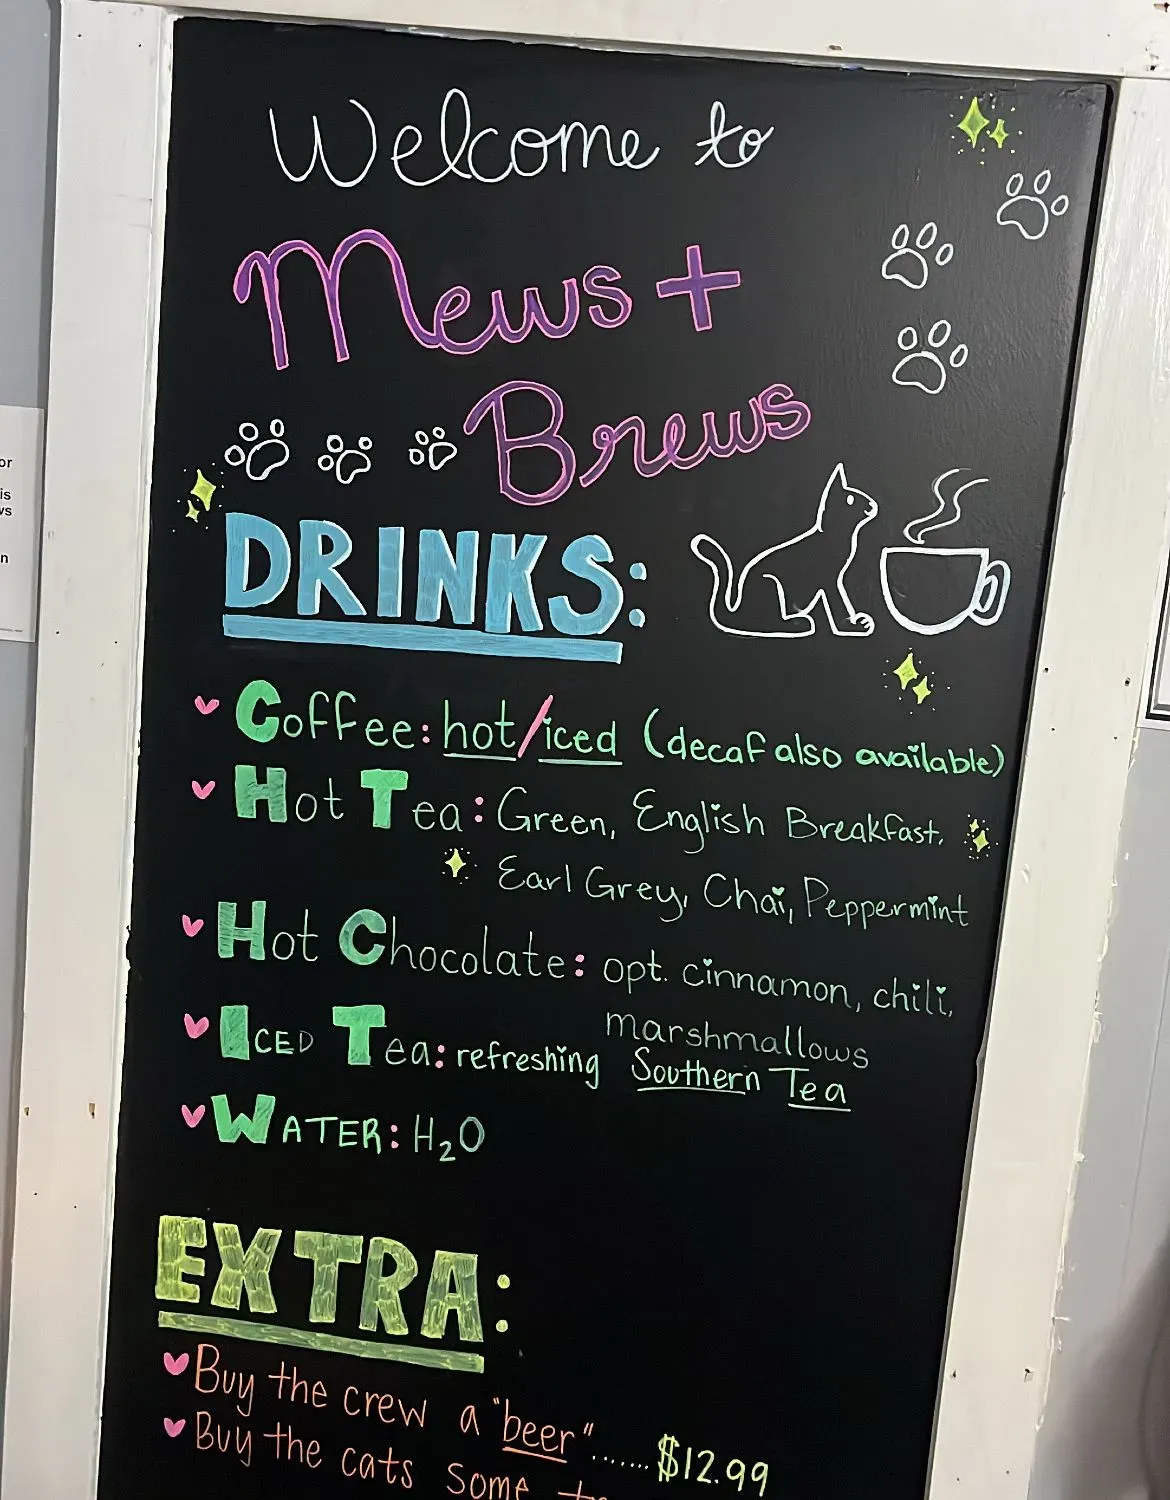 Welcome to
Mews +
Brews
DRINKS:
Coffee: hot/iced (decaf also available)
Hot Tea: Green, English Breakfast,
Earl Grey, Chai, Peppermint
Hot Chocolate: opt. cinnamon, chili,
marshmallows
ICED Tea: refreshing Southern Tea
WATER: H₂O
EXTRA:
Buy the crew a "beer"....... $12.99
Buy the cats some
or
is
n